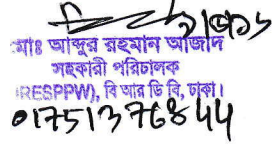 মোঃ আব্দুর রহমান আজাদ
সহকারী পরিচালক
(RESPPW), বি আর ডি বি, ঢাকা।
01751376844